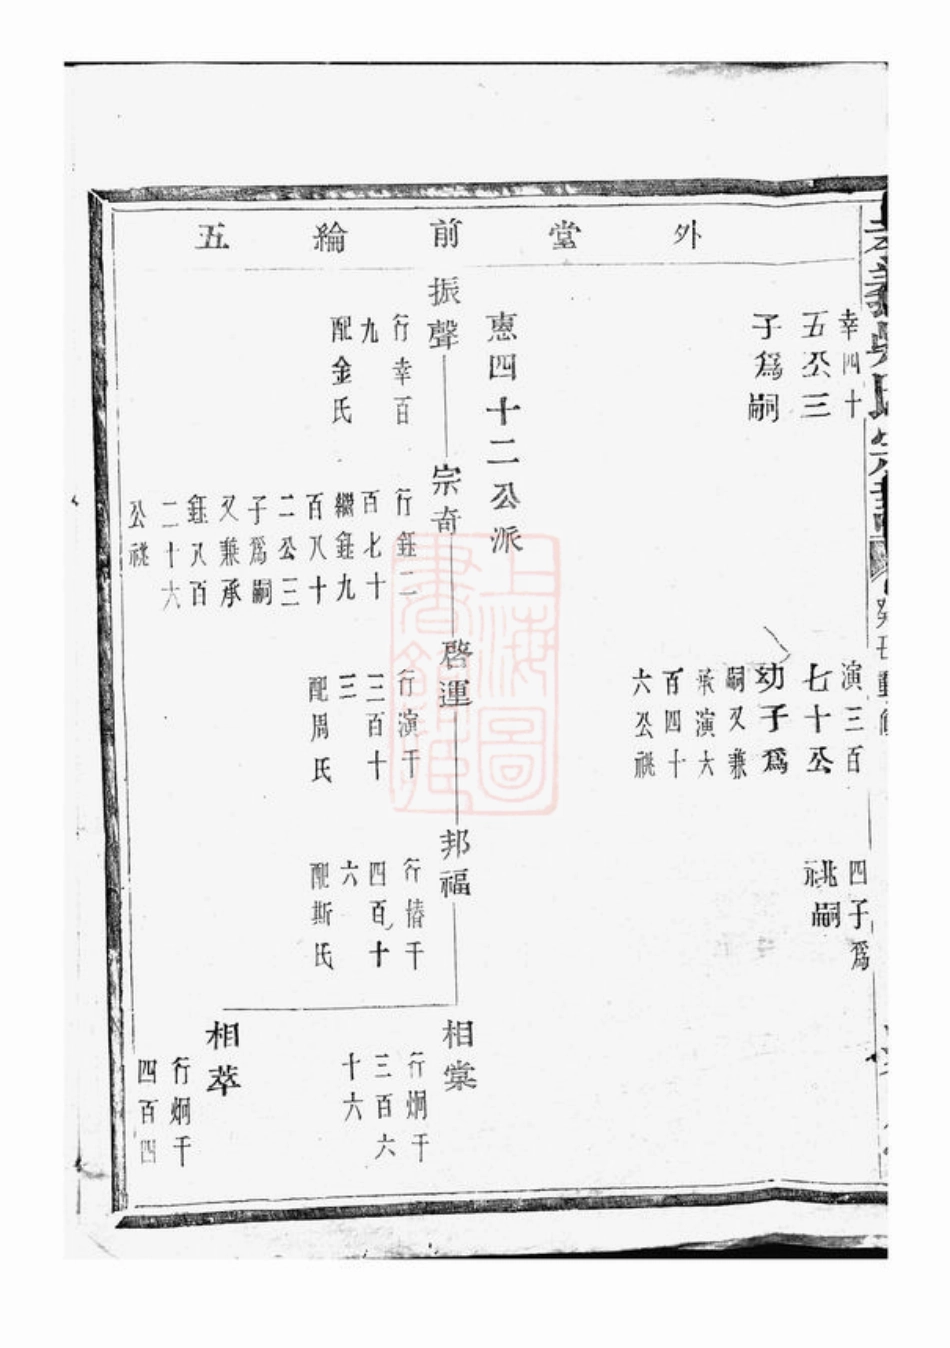 外堂前綸五
幸四十
五公三
子爲嗣
演三百
七十公
幼子爲
嗣又兼
承演六
百四十
六公祧
四子爲
祧嗣
惠四十二公派
振聲
行幸百
九
配金氏
宗奇
行鈺二
百七十
繼鈺九
百八十
二公三
子爲嗣
又兼承
鈺八百
二十六
公祧
啓運
行演千
三百十
三
配周氏
邦福
行椿千
四百十
六
配斯氏
相棠
行炯千
三百六
十六
相萃
行炯千
四百四
上海圖書館藏